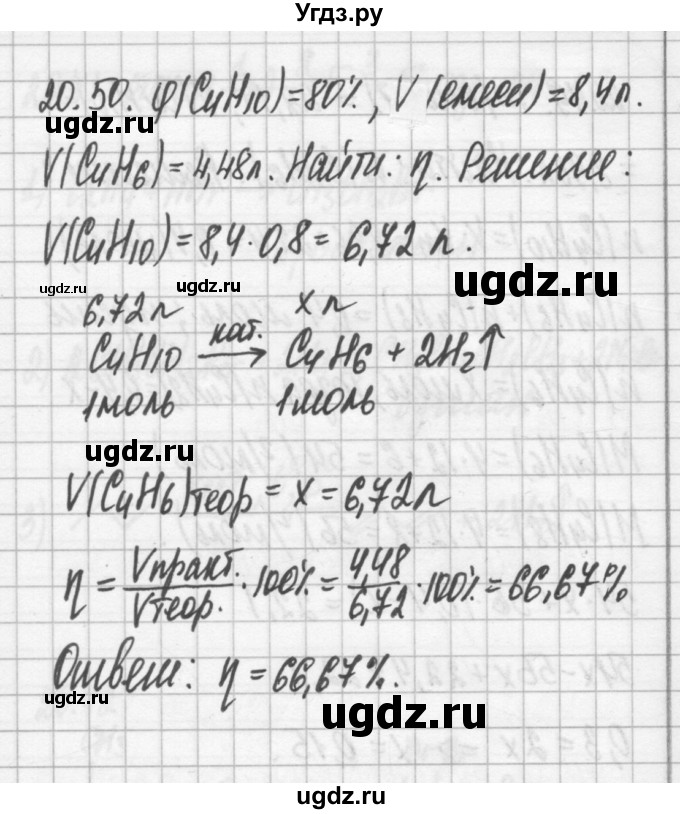 Угдз.ру
20.50. φ(C₄H₁₀) = 80%, V (смеси) = 8,4 л.
ugdz.ru
V(C₄H₆) = 4,48 л. Найти: η. Решение:
V(C₄H₁₀) = 8,4 · 0,8 = 6,72 л.
ugdz.ru ugdz.ru ugdz.ru
6,72 л x л
C₄H₁₀ —кат.→ C₄H₆ + 2H₂↑
1 моль 1 моль
ugdz.ru
V(C₄H₆)теор = x = 6,72 л
η = Vпракт./Vтеор. · 100% = 4,48/6,72 · 100% = 66,67%
ugdz.ru
Ответ: η = 66,67%.
ugdz.ru
ugdz.ru
ugdz.ru